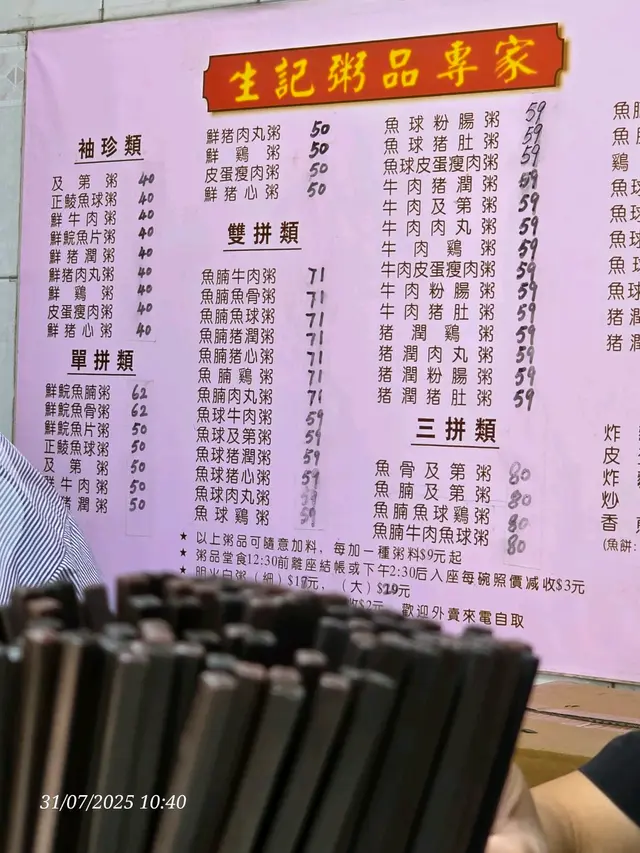 生記粥品專家
袖珍類
及第粥 40
正鯪魚球粥 40
鮮牛肉粥 40
鮮鯇魚片粥 40
鮮猪潤粥 40
鮮猪肉丸粥 40
鮮鷄粥 40
皮蛋瘦肉粥 40
鮮猪心粥 40
單拼類
鮮鯇魚腩粥 62
鮮鯇魚骨粥 62
鮮鯇魚片粥 50
正鯪魚球粥 50
及第粥 50
牛肉粥 50
猪潤粥 50
鮮猪肉丸粥 50
鮮鷄粥 50
皮蛋瘦肉粥 50
鮮猪心粥 50
雙拼類
魚腩牛肉粥 71
魚腩魚骨粥 71
魚腩魚球粥 71
魚腩猪潤粥 71
魚腩猪心粥 71
魚腩鷄粥 71
魚腩肉丸粥 71
魚球牛肉粥 59
魚球及第粥 59
魚球猪潤粥 59
魚球猪心粥 59
魚球肉丸粥 59
魚球鷄粥 59
魚球粉腸粥 59
魚球猪肚粥 59
魚球皮蛋瘦肉粥 59
牛肉猪潤粥 59
牛肉及第粥 59
牛肉肉丸粥 59
牛肉鷄粥 59
牛肉皮蛋瘦肉粥 59
牛肉粉腸粥 59
牛肉猪肚粥 59
猪潤鷄粥 59
猪潤肉丸粥 59
猪潤粉腸粥 59
猪潤猪肚粥 59
三拼類
魚骨及第粥 80
魚腩及第粥 80
魚腩魚球鷄粥 80
魚腩牛肉魚球粥 80
魚
魚
鷄
魚球
魚球
魚球
魚球
魚球
猪潤
猪潤
炸
皮
炸
炒
香
(魚餅:
★ 以上粥品可隨意加料，每加一種粥料$9元起
★ 粥品堂食12:30前離座結帳或下午2:30后入座每碗照價减收$3元
★ 明火白粥（細）元，（大）元
收$2元，歡迎外賣來電自取
31/07/2025 10:40